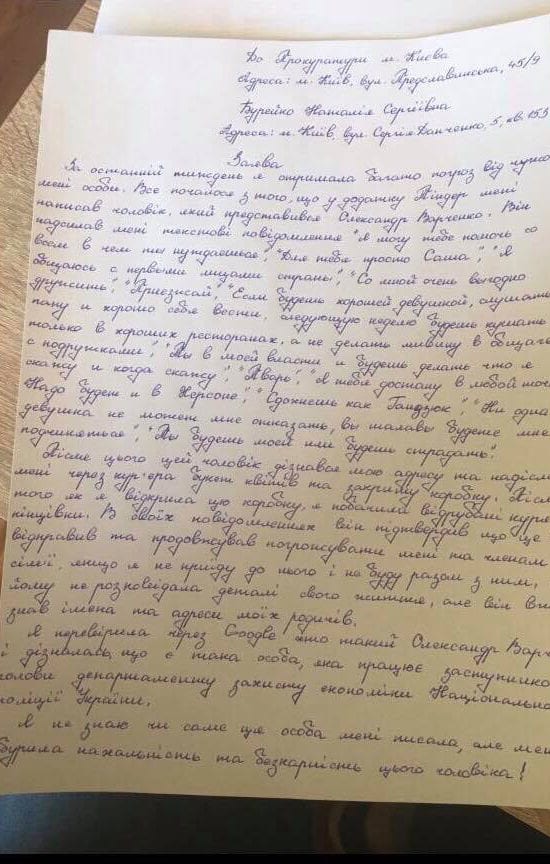 До Прокуратури м. Києва
Адреса: м. Київ, вул. Предславинська, 45/9
Бурейко Наталія Сергіївна
Адреса: м. Київ, вул. Сергія Данченко, 5, кв. 155
Заява
За останній тиждень я отримала багато погроз від
мені особи. Все почалося з того, що у додатку Тіндер мені
написав чоловік, який представився Олександр Варченко. Він
надсилав мені текстові повідомлення "Я могу тебе помочь со
всем в чем ты нуждаешься", "Для тебя просто Саша", "Я
общаюсь с первыми лицами страны", "Со мной очень выгодно
дружить", "Приезжай", "Если будешь хорошей девушкой, слушать
папу и хорошо себя вести, следующую неделю будешь кушать
только в хороших ресторанах, а не делать мивину в общаге
с подружками", "Ты в моей власти и будешь делать что я
скажу и когда скажу", "Тварь", "Я тебя достану в любой
Надо будет и в Херсоне", "Сдохнешь как Гандзюк", "Ни одна
девушка не может мне отказать, вы шалавы будете мне
подчиняться", "Ты будешь моей или будешь страдать".
Після цього цей чоловік дізнався мою адресу та надіслав
мені через кур'єра букет квітів та закриту коробку. Після
того як я відкрила цю коробку, я побачила відрубані
кінцівки. В своїх повідомленнях він підтвердив що це
відправив та продовжував погрожувати мені та членам
сім'ї, якщо я не приїду до нього і не буду разом з ним,
йому не розповідала деталі свого життя, але він
знав імена та адреси моїх родичів.
Я перевірила через Google хто такий Олександр
і дізналась, що є така особа, яка працює
голови департаменту захисту економіки
поліції України.
Я не знаю чи саме ця особа мені писала, але
бурила нахальність та безкарність цього чоловіка!